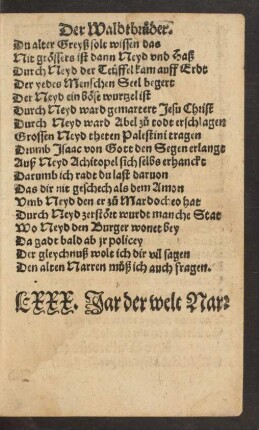 Der Waldtbrüder.
Du alter Greyß solt wissen das
Nit grössers ist dann Neyd vnd Haß
Durch Neyd der Teüffel kam auff Erdt
Der yedes Menschen Seel begert
Der Neyd ein böse wurtzel ist
Durch Neyd ward gemartert Jesu Christ
Durch Neyd ward Abel zů todt erschlagen
Grossen Neyd theten Palestini tragen
Drumb Isaac von Gott den Segen erlangt
Auß Neyd Achitopel sich selbs erhanckt
Darumb ich radt du last daruon
Das dir nit geschech als dem Amon
Vmb Neyd den er zů Mardocheo hat
Durch Neyd zerstört wurdt manche Stat
Wo Neyd den Burger wonet bey
Da gadt bald ab jr policey
Der gleychnuß wolt ich dir vil sagen
Den alten Narren můß ich auch fragen.
LXXX. Jar der welt Narr